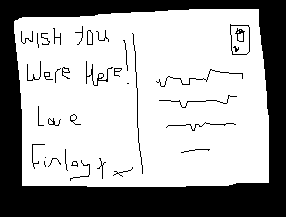 Wish you
Were Here!
Love
Finlay x x